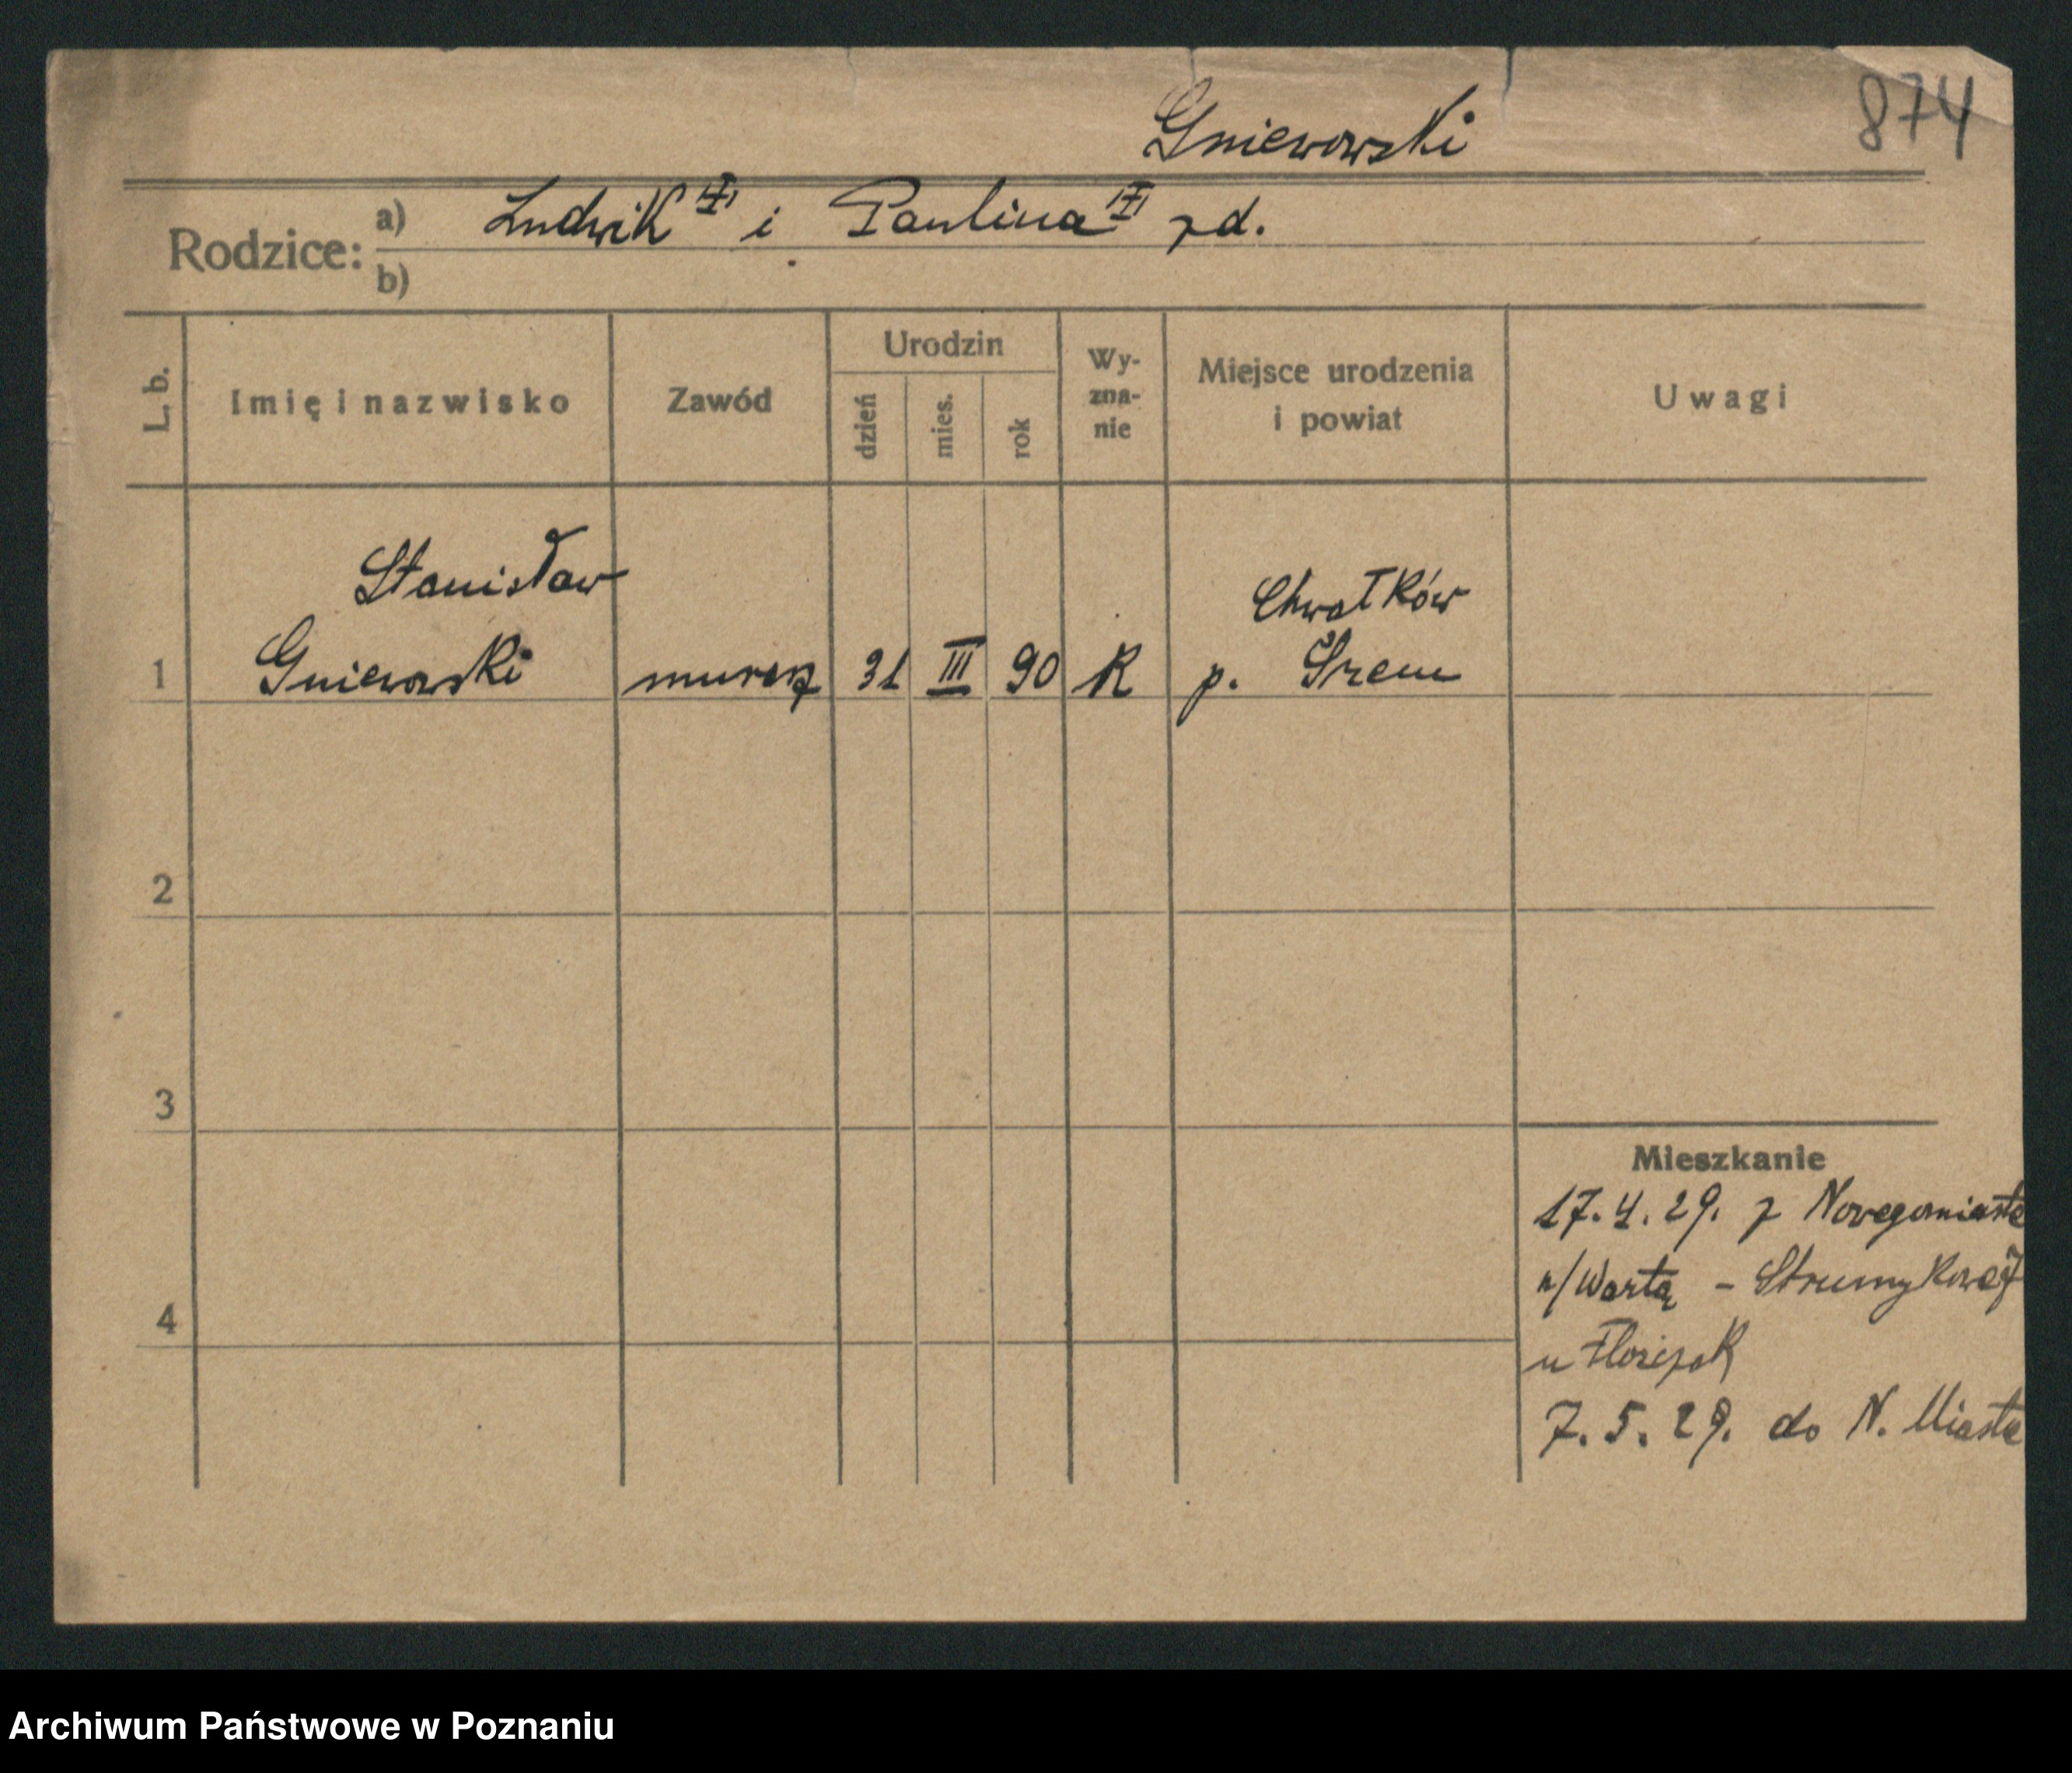 874
Gniewowski
Rodzice: a) Ludwik i Paulina zd.
b)
L. b. Imię i nazwisko Zawód Urodzin dzień mies. rok Wy-zna-nie Miejsce urodzenia i powiat Uwagi
Stanisław Chwałków
1 Gniewowski murarz 31 III 90 K p. Śrem
2
3
Mieszkanie
17.4.29. z Novegomiasta
n/Wartą - Strumykowa
4
u
7.5.29. do N. Miasta
Archiwum Państwowe w Poznaniu